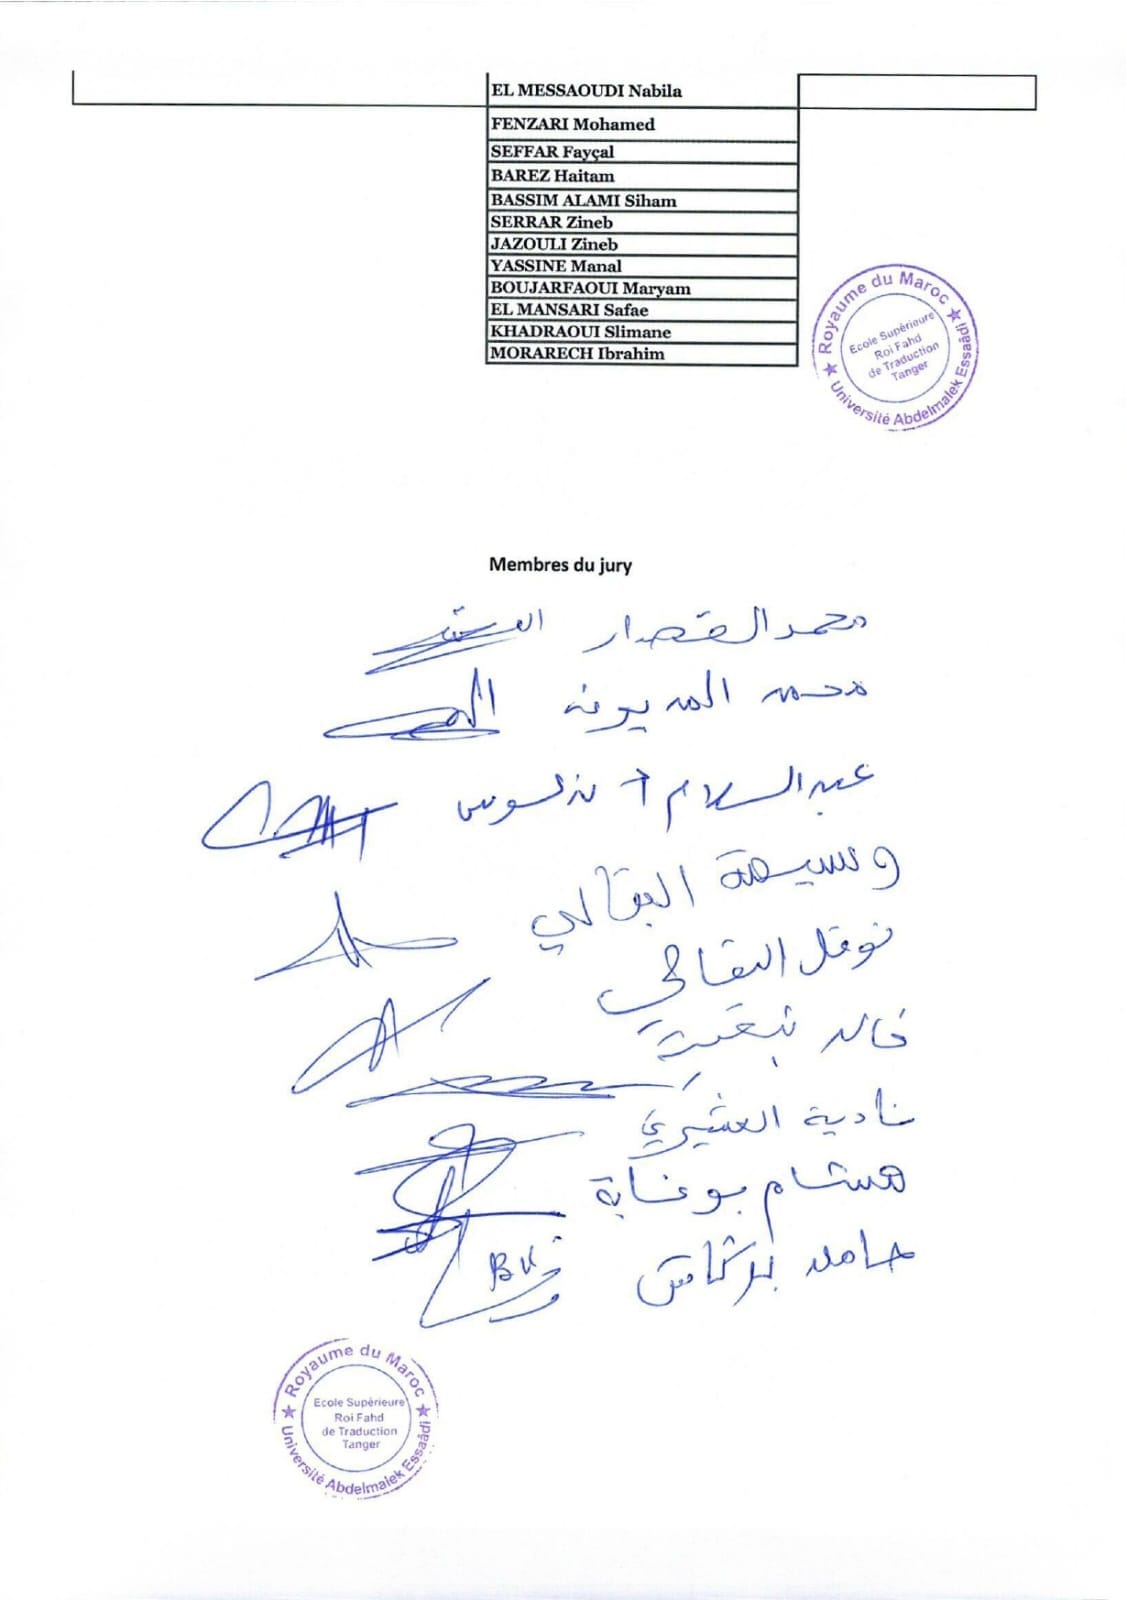 EL MESSAOUDI Nabila
FENZARI Mohamed
SEFFAR Fayçal
BAREZ Haitam
BASSIM ALAMI Siham
SERRAR Zineb
JAZOULI Zineb
YASSINE Manal
BOUJARFAOUI Maryam
EL MANSARI Safae
KHADRAOUI Slimane
MORARECH Ibrahim
Royaume du Maroc
Ecole Supérieure
Roi Fahd
de Traduction
Tanger
Université Abdelmalek Essaâdi
Membres du jury
محمد القصار
محمد المديونة
عبد السلام
وسيمة البقالي
نوفل البقالي
خالد
نادية العشيري
هشام بوغابة
حامد
BK
Royaume du Maroc
Ecole Supérieure
Roi Fahd
de Traduction
Tanger
Université Abdelmalek Essaâdi